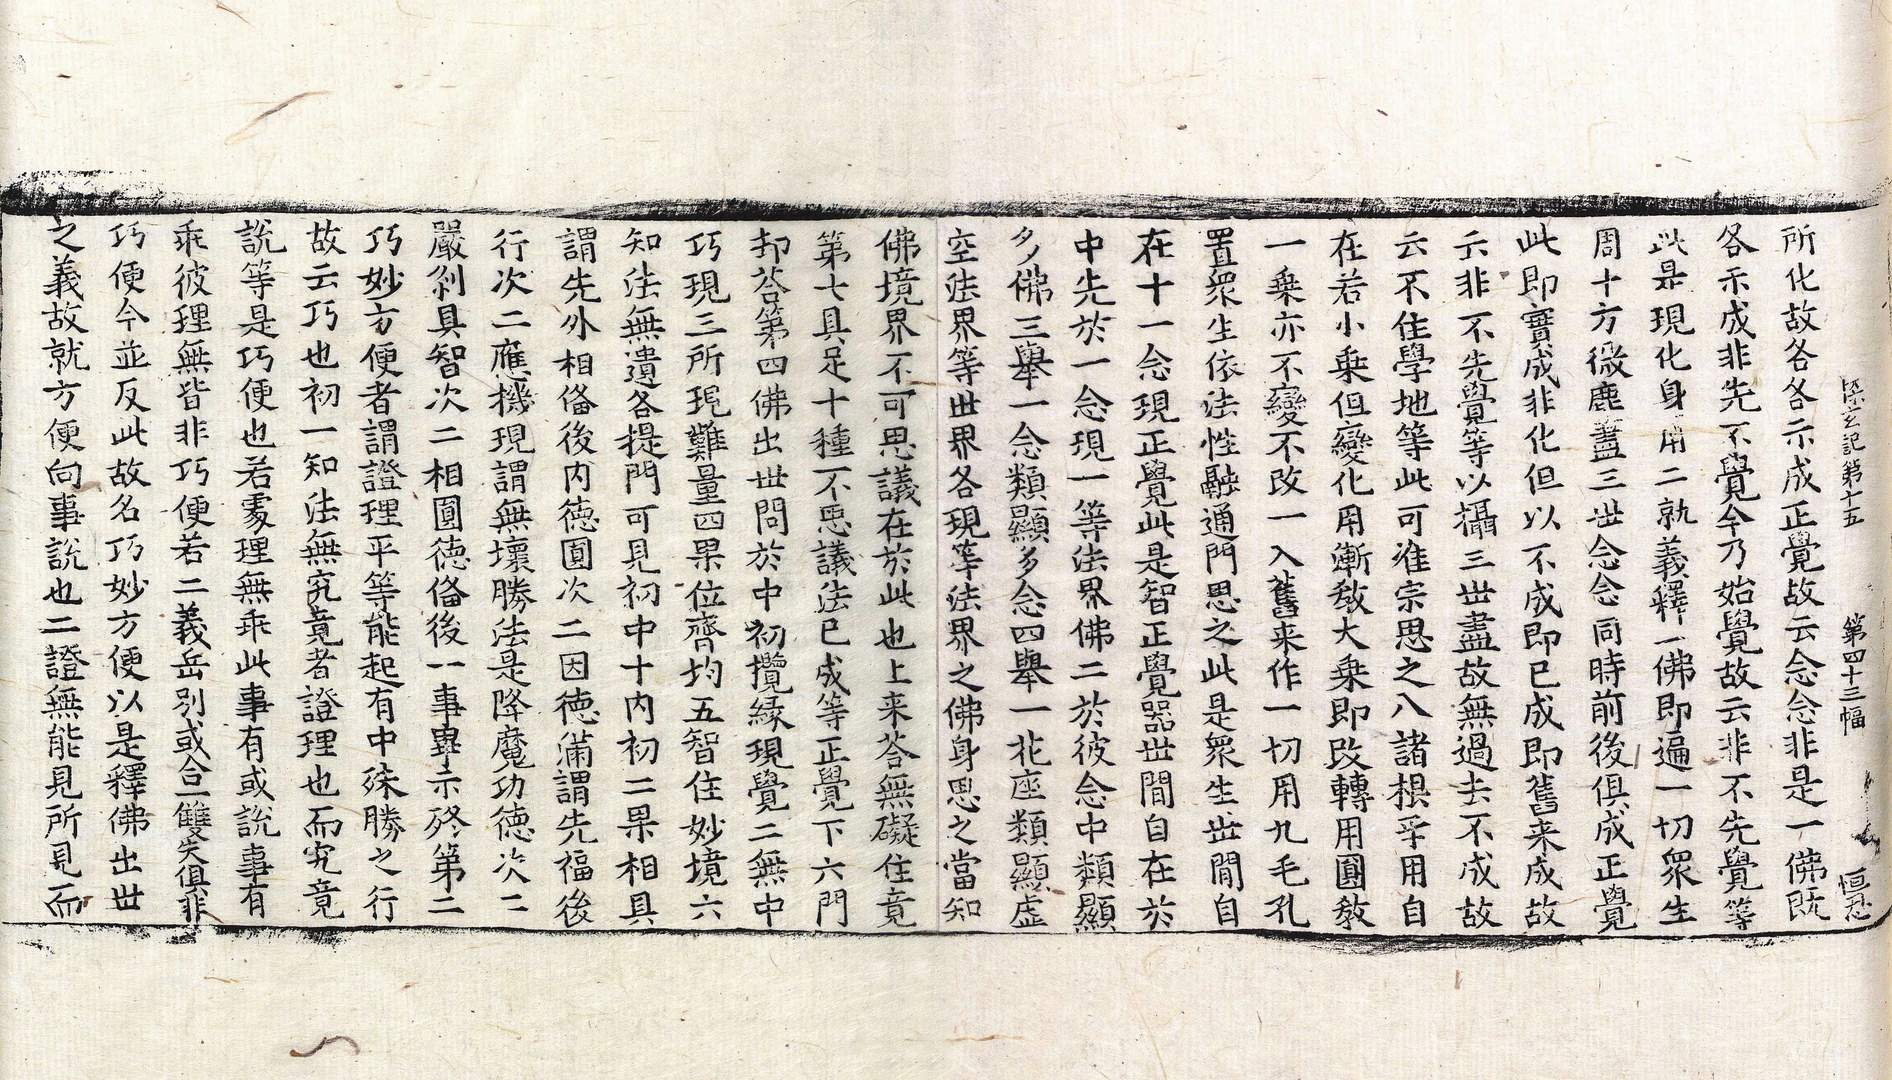 探玄記第十五　第四十三幅　恒忍
所化故各各示成正覺故云念念非是一佛既
各示成非先不覺今乃始覺故云非不先覺等
此是現化身用二就義釋一佛即遍一切衆生
周十方微塵盡三世念念同時前後俱成正覺
此即實成非化但以不成即已成即舊来成故
云非不先覺等以攝三世盡故無過去不成故
云不住學地等此可准宗思之八諸根乎用自
在若小乗但變化用漸教大乗即改轉用圓教
一乗亦不變不改一入舊来作一切用九毛孔
置衆生依法性融通門思之此是衆生世間自
在十一念現正覺此是智正覺器世間自在於
中先於一念現一等法界佛二於彼念中類顯
多佛三舉一念類顯多念四舉一花座類顯虛
空法界等世界各現等法界之佛身思之當知
佛境界不可思議在於此也上来荅無礙住竟
第七具足十種不思議法已成等正覺下六門
却荅第四佛出世問於中初攬緣現覺二無中
巧現三所現難量四果位齊均五智住妙境六
知法無遺各提門可見初中十内初二果相具
謂先外相俻後内徳圓次二因徳滿謂先福後
行次二應機現謂無壞勝法是降魔功徳次二
嚴剎具智次二相圓徳俻後一事畢示終第二
巧妙方便者謂證理平等能起有中殊勝之行
故云巧也初一知法無究竟者證理也而究竟
説等是巧便也若䖏理無乖此事有或説事有
乖彼理無皆非巧便若二義岳別或合一雙失俱非
巧便今並反此故名巧妙方便以是釋佛出世
之義故就方便向事説也二證無能見所見而